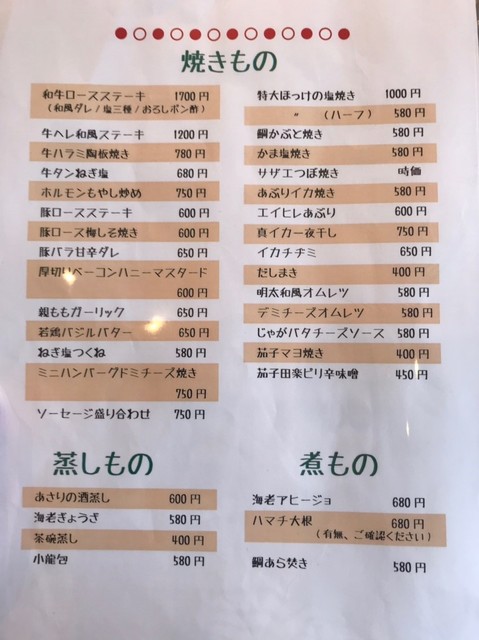 焼きもの
和牛ロースステーキ 1700円
(和風ダレ/塩三種/おろしポン酢)
牛ヘレ和風ステーキ 1200円
牛ハラミ陶板焼き 780円
牛タンねぎ塩 680円
ホルモンもやし炒め 750円
豚ロースステーキ 600円
豚ロース梅しそ焼き 600円
豚バラ甘辛ダレ 650円
厚切りベーコンハニーマスタード
600円
親ももガーリック 650円
若鶏バジルバター 650円
ねぎ塩つくね 580円
ミニハンバーグドミチーズ焼き
750円
ソーセージ盛り合わせ 750円
特大ほっけの塩焼き 1000円
〃 (ハーフ) 580円
鯛かぶと焼き 580円
かま塩焼き 580円
サザエつぼ焼き 時価
あぶりイカ焼き 580円
エイヒレあぶり 600円
真イカ一夜干し 750円
イカチヂミ 650円
だしまき 400円
明太和風オムレツ 580円
デミチーズオムレツ 580円
じゃがバタチーズソース 580円
茄子マヨ焼き 400円
茄子田楽ピリ辛味噌 450円
蒸しもの
あさりの酒蒸し 600円
海老ぎょうざ 580円
茶碗蒸し 400円
小龍包 580円
煮もの
海老アヒージョ 680円
ハマチ大根 680円
(有無、ご確認ください)
鯛あら焚き 580円